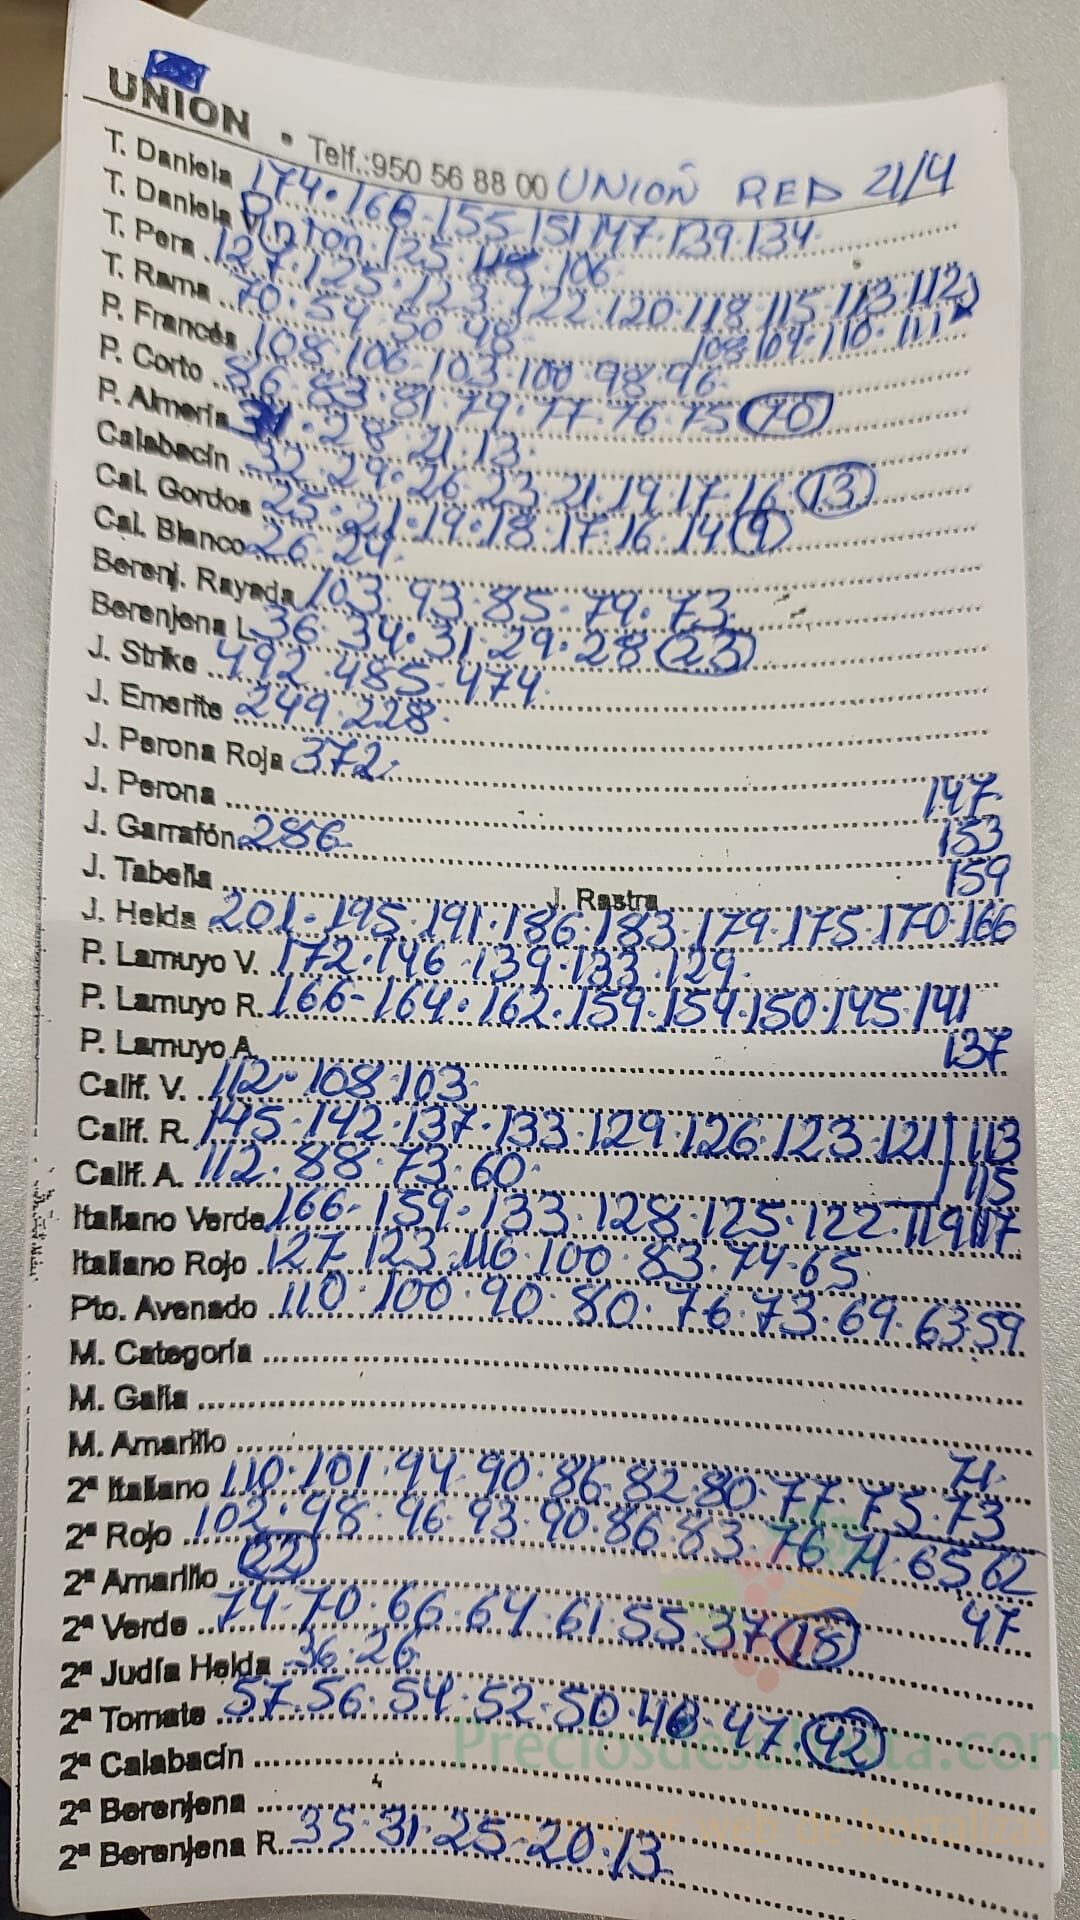 UNION • Telf.:950 56 88 00 UNION RED 21/4
T. Daniela 174·166·155·151·147·139·134
T. Daniela V. Pintón·125·118·106
T. Pera 127·125·123·122·120·118·115·113·112
T. Rama 70·54·50·48 108·109·110·111
P. Francés 108·106·103·100·98·96
P. Corto 86·83·81·79·77·76·75 70
P. Almería 31·28·21·13
Calabacín 32·29·26·23·21·19·17·16 13
Cal. Gordos 25·21·19·18·17·16·14 9
Cal. Blanco 26·24
Berenj. Rayada 103·93·85·79·73
Berenjena L. 36·34·31·29·28 23
J. Strike 492·485·474
J. Emerite 249·228
J. Perona Roja 372
J. Perona 147
J. Garrafón 286 153
J. Tabella J. Rastra 159
J. Helda 201·195·191·186·183·179·175·170·166
P. Lamuyo V. 172·146·139·133·129
P. Lamuyo R. 166-164·162·159·154·150·145·141
P. Lamuyo A. 137
Calif. V. 112·108·103
Calif. R. 145·142·137·133·129·126·123·121 113
Calif. A. 112·88·73·60 115
Italiano Verde 166-159·133·128·125·122·119 117
Italiano Rojo 127·123·116·100·83·74·65
Pto. Avenado 110·100·90·80·76·73·69·63·59
M. Categoría
M. Galia
M. Amarillo 71
2ª Italiano 110·101·94·90·86·82·80·77·75·73
2ª Rojo 102·98·96·93·90·86·83·76·71·65·62
2ª Amarillo 22 47
2ª Verde 74·70·66·64·61·55·37 18
2ª Judía Helda 36·26
2ª Tomate 57·56·54·52·50·48·47·42
2ª Calabacín
Preciosdesubasta.com
2ª Berenjena
web de hortalizas
2ª Berenjena R. 35·31·25·20·13